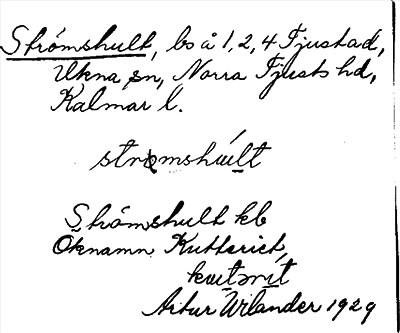 Strömshult, bs å 1, 2, 4 Tjustad,
Ukna sn, Norra Tjusts hd,
Kalmar l.
strömshúlt
Strömshult kb
Öknamn Kutterict,
Artur Urlander 1929